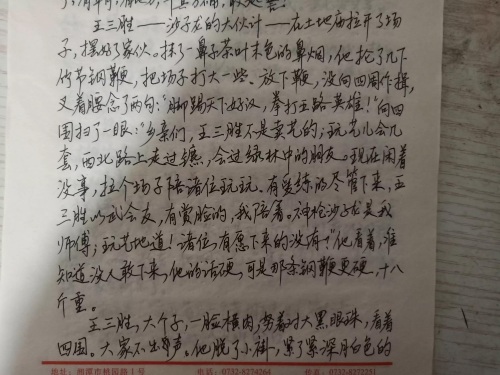 王三胜——沙子龙的大伙计——在土地庙拉开了场
子,摆好了家伙。抹了一鼻子茶叶末色的鼻烟,他抡了几下
竹节钢鞭,把场子打大一些。放下鞭,没向四周作揖,
叉着腰念了两句:“脚踢天下好汉,拳打五路英雄!”向四
围扫了一眼:“乡亲们,王三胜不是卖艺的;玩艺儿会几
套,西北路上走过镖,会过绿林中的朋友。现在闲着
没事,拉个场子陪诸位玩玩。有爱练的尽管下来,王
三胜以武会友,有赏脸的,我陪着。神枪沙子龙是我
师傅;玩艺地道!诸位,有愿下来的没有?”他看着,准
知道没人敢下来,他的话硬,可是那条钢鞭更硬,十八
斤重。
王三胜,大个子,一脸横肉,努着对大黑眼珠,看着
四围。大家不出声。他脱了小褂,紧了紧深月白色的
地址:湘潭市桃园路1号 电话:0732-8274264